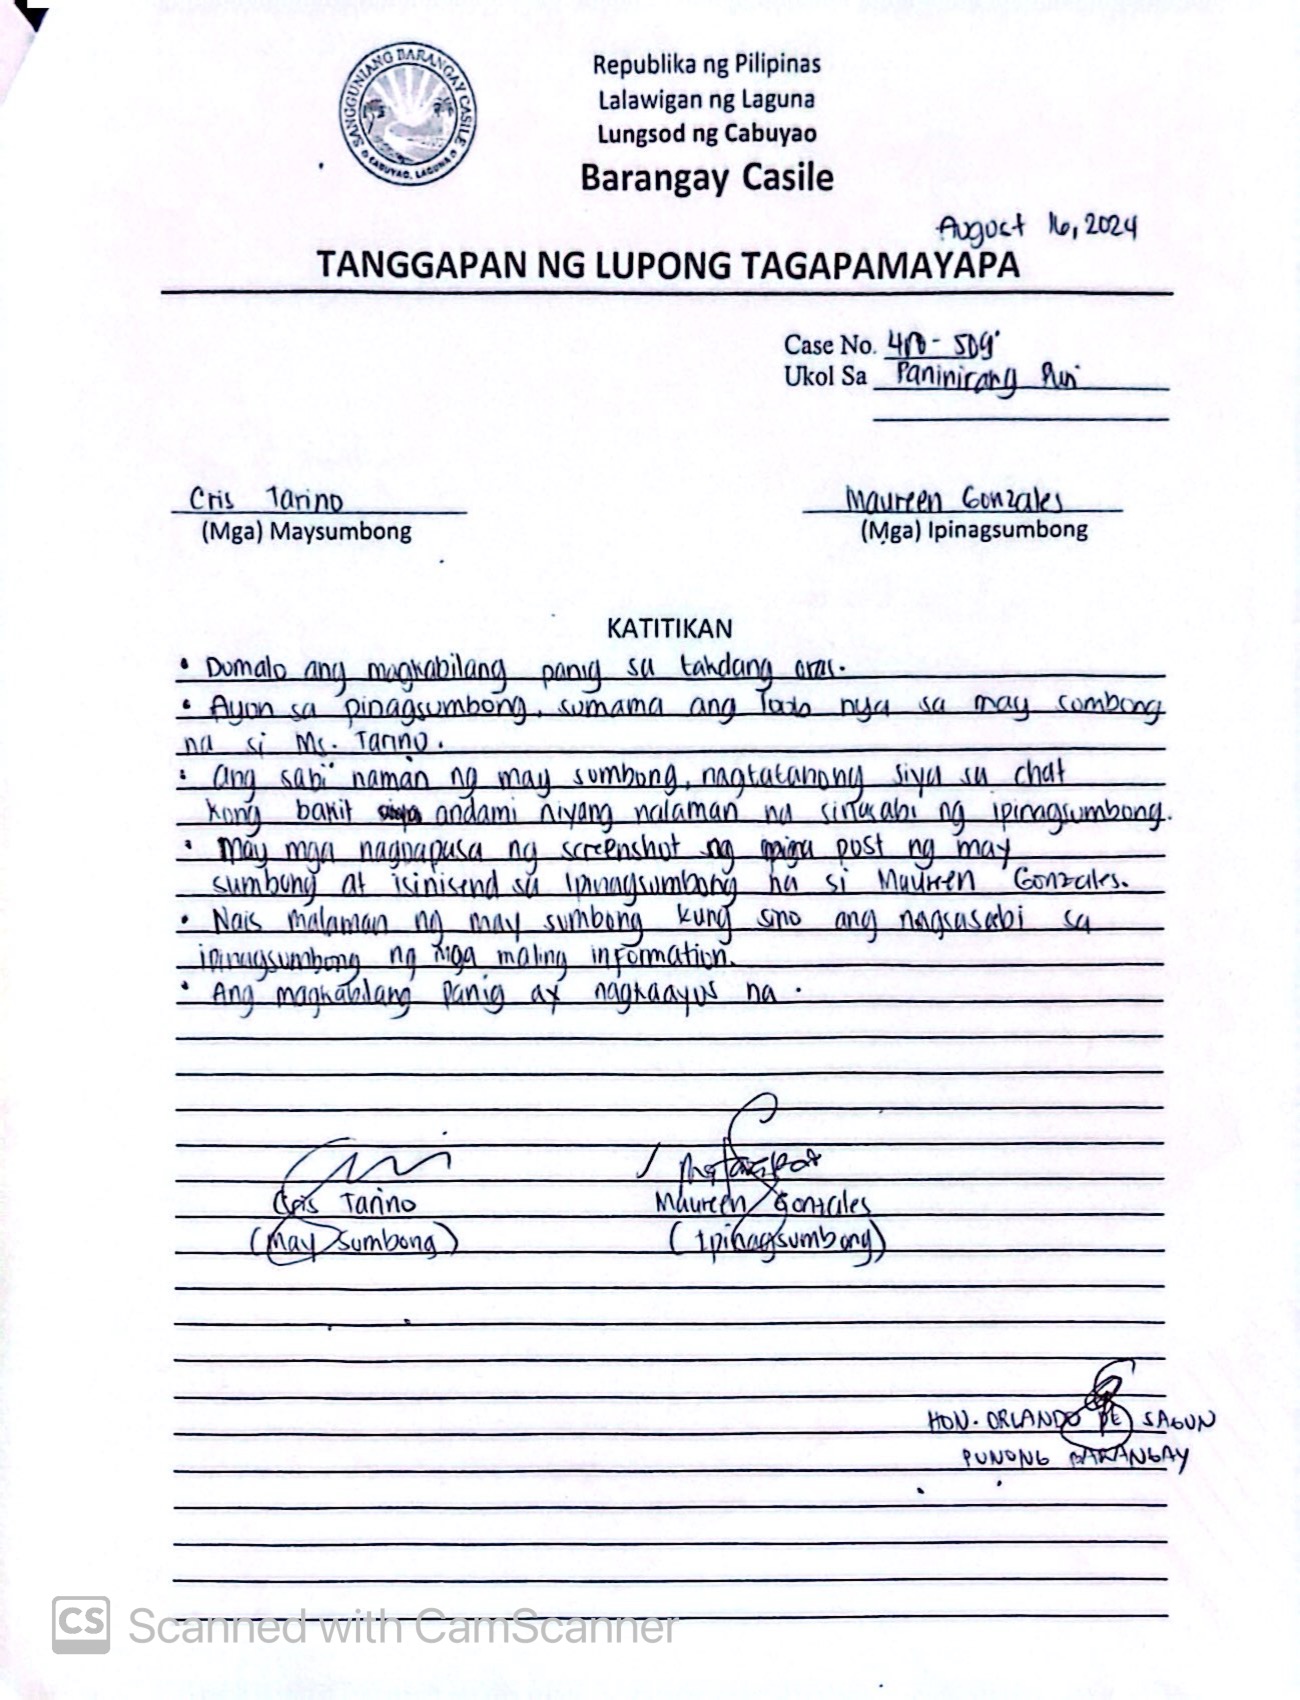 SANGGUNIANG BARANGAY CASILE
CABUYAO, LAGUNA
Republika ng Pilipinas
Lalawigan ng Laguna
Lungsod ng Cabuyao
Barangay Casile
August 16, 2024
TANGGAPAN NG LUPONG TAGAPAMAYAPA
Case No.
Ukol Sa Paninirang Puri
Cris Tarino
(Mga) Maysumbong
Maureen Gonzales
(Mga) Ipinagsumbong
KATITIKAN
• Dumalo ang magkabilang panig sa takdang oras.
• Ayon sa pinagsumbong, sumama ang loob nya sa may sumbong
na si Ms. Tarino.
• Ang sabi naman ng may sumbong, nagtatanong siya sa chat
kong bakit andami niyang nalaman na sinasabi ng ipinagsumbong.
• May mga nagpapasa ng screenshot ng mga post ng may
sumbong at isinisend sa Ipinagsumbong na si Maureen Gonzales.
• Nais malaman ng may sumbong kung sino ang nagsasabi sa
ipinagsumbong ng mga maling information.
• Ang magkabilang panig ay nagkaayos na.
Cris Tarino
(May Sumbong)
Maureen Gonzales
(Ipinagsumbong)
HON. ORLANDO DE SAGUN
PUNONG BARANGAY
CS Scanned with CamScanner